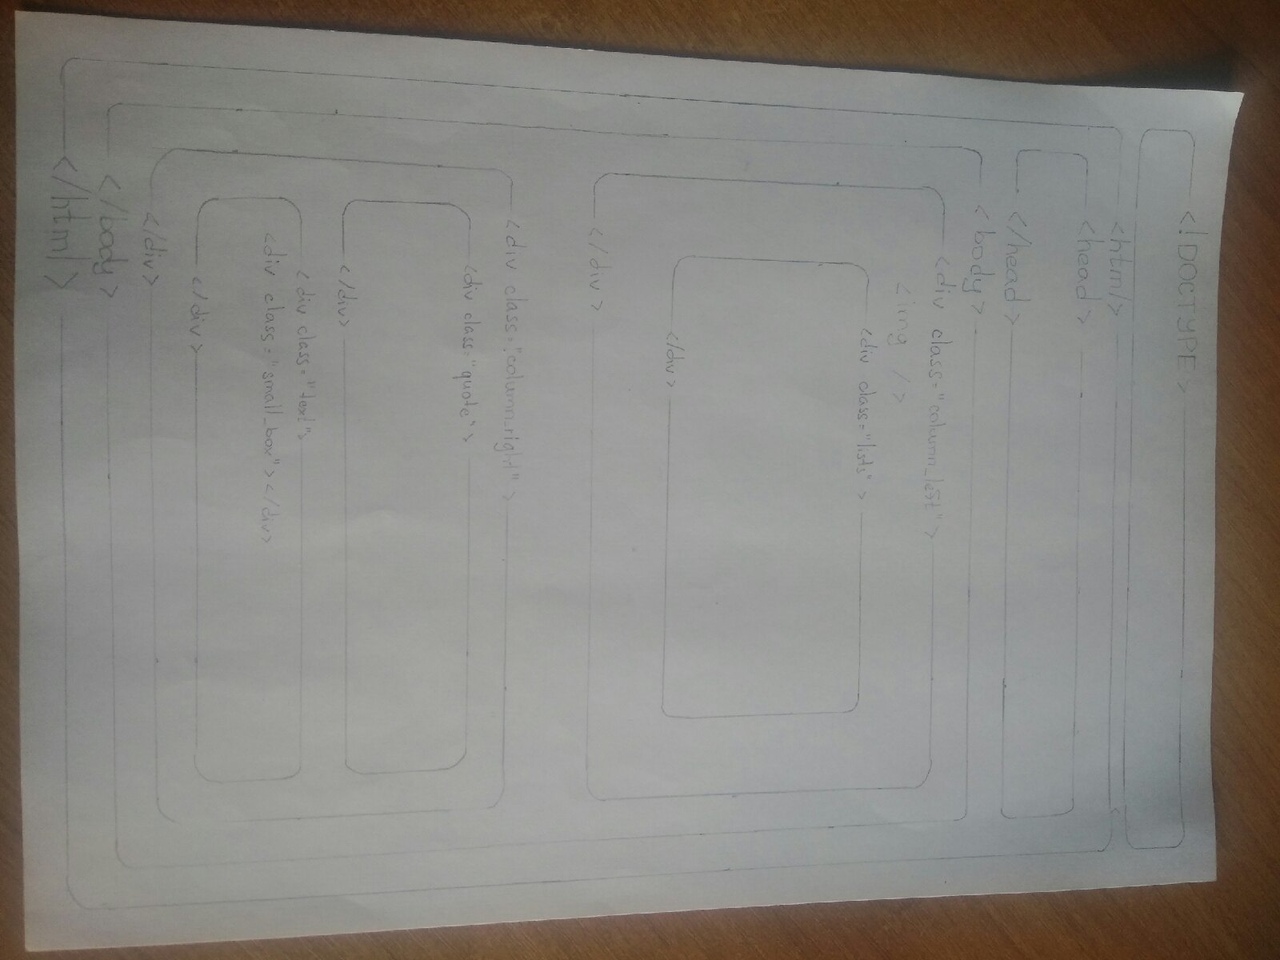 <!DOCTYPE>
<html>
<head>
</head>
<body>
<div class="column_left">
<img />
<div class="lists">
</div>
</div>
<div class="column_right">
<div class="quote">
</div>
<div class="text">
<div class="small_box"></div>
</div>
</div>
</body>
</html>